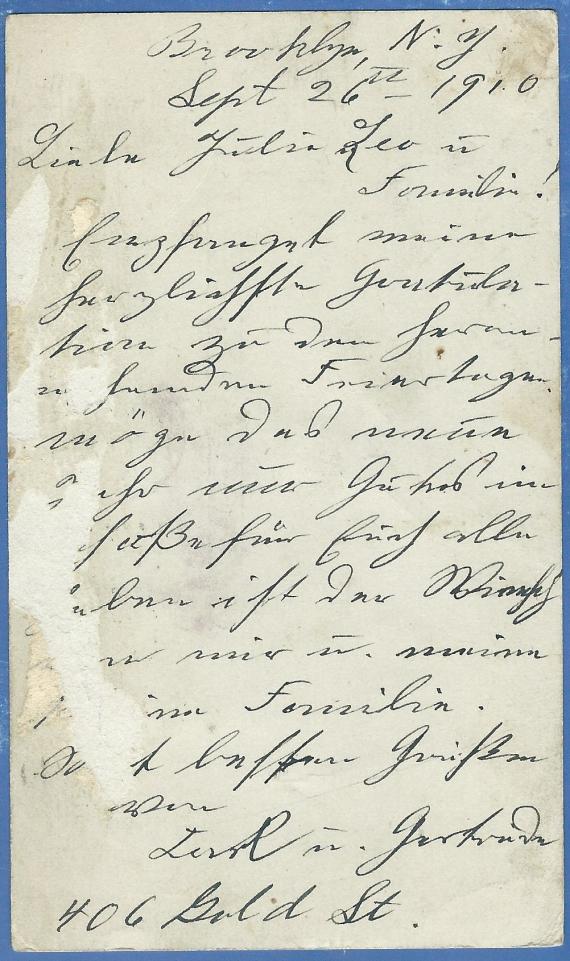 Brooklyn, N.Y.
Sept 26th 1910
Liebe Julie Leo u
Familie!
Empfanget meine
herzlichste Gratula-
tion zu den heran-
n henden Feiertagen.
möge das neue
Jahr nur Gutes im
hoße für Euch alle
aben ist der Wunsch
n mir u. meine
ine Familie.
t besten Grüßen
von
u. Gertrude
406 Gold St.